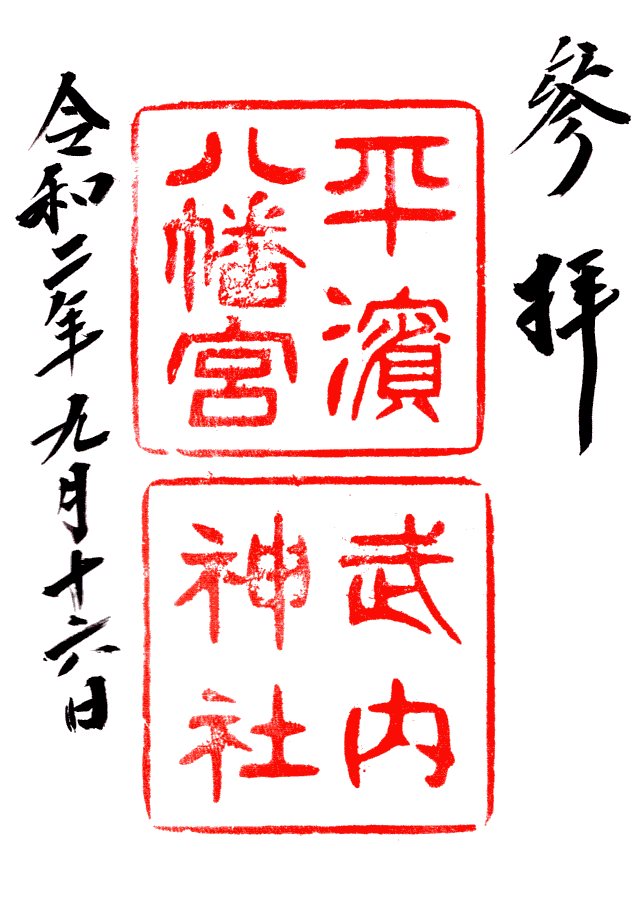 參拝
平濱
八幡宮
武内
神社
令和二年九月十六日